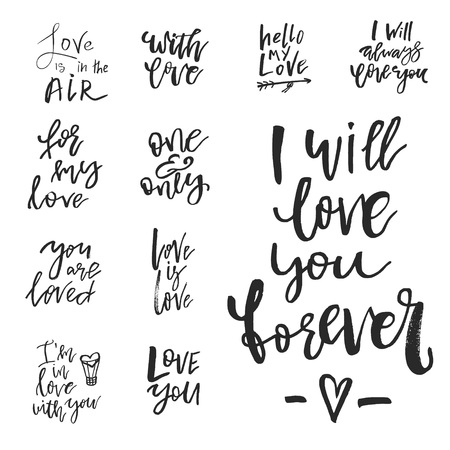 Love
is in the
AIR
with
love
hello
my
Love
I will
always
love you
for
my
love
one
&
only
I will
love
you
forever
you
are
loved
love
is
love
I'm
in
love
with you
Love
you